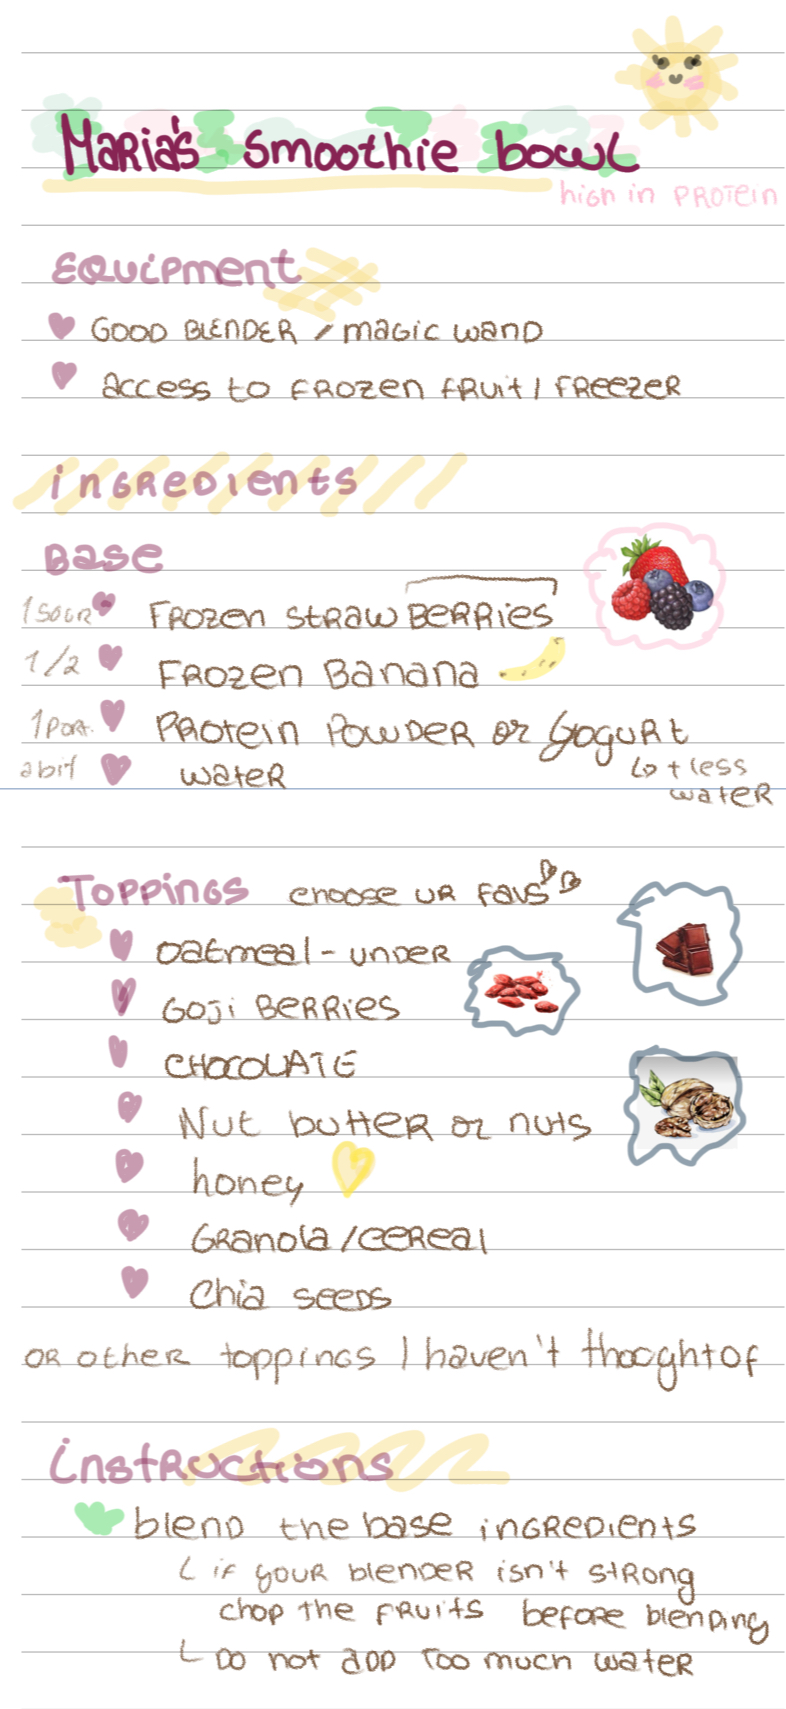 Maria's smoothie bowl
high in PROTEin
Equipment
GOOD BLENDER / magic wand
access to frozen fruit / freezer
ingredients
Base
150GR Frozen strawberries
1/2 Frozen Banana
1 port. Protein Powder or Yogurt
a bit water
↳ + less
water
Toppings choose ur favs
oatmeal - under
Goji Berries
CHOCOLATE
Nut butter or nuts
honey
Granola/cereal
Chia seeds
or other toppings I haven't thooght of
instructions
blend the base ingredients
└ if your blender isn't strong
chop the fruits before blending
└ Do not add too much water